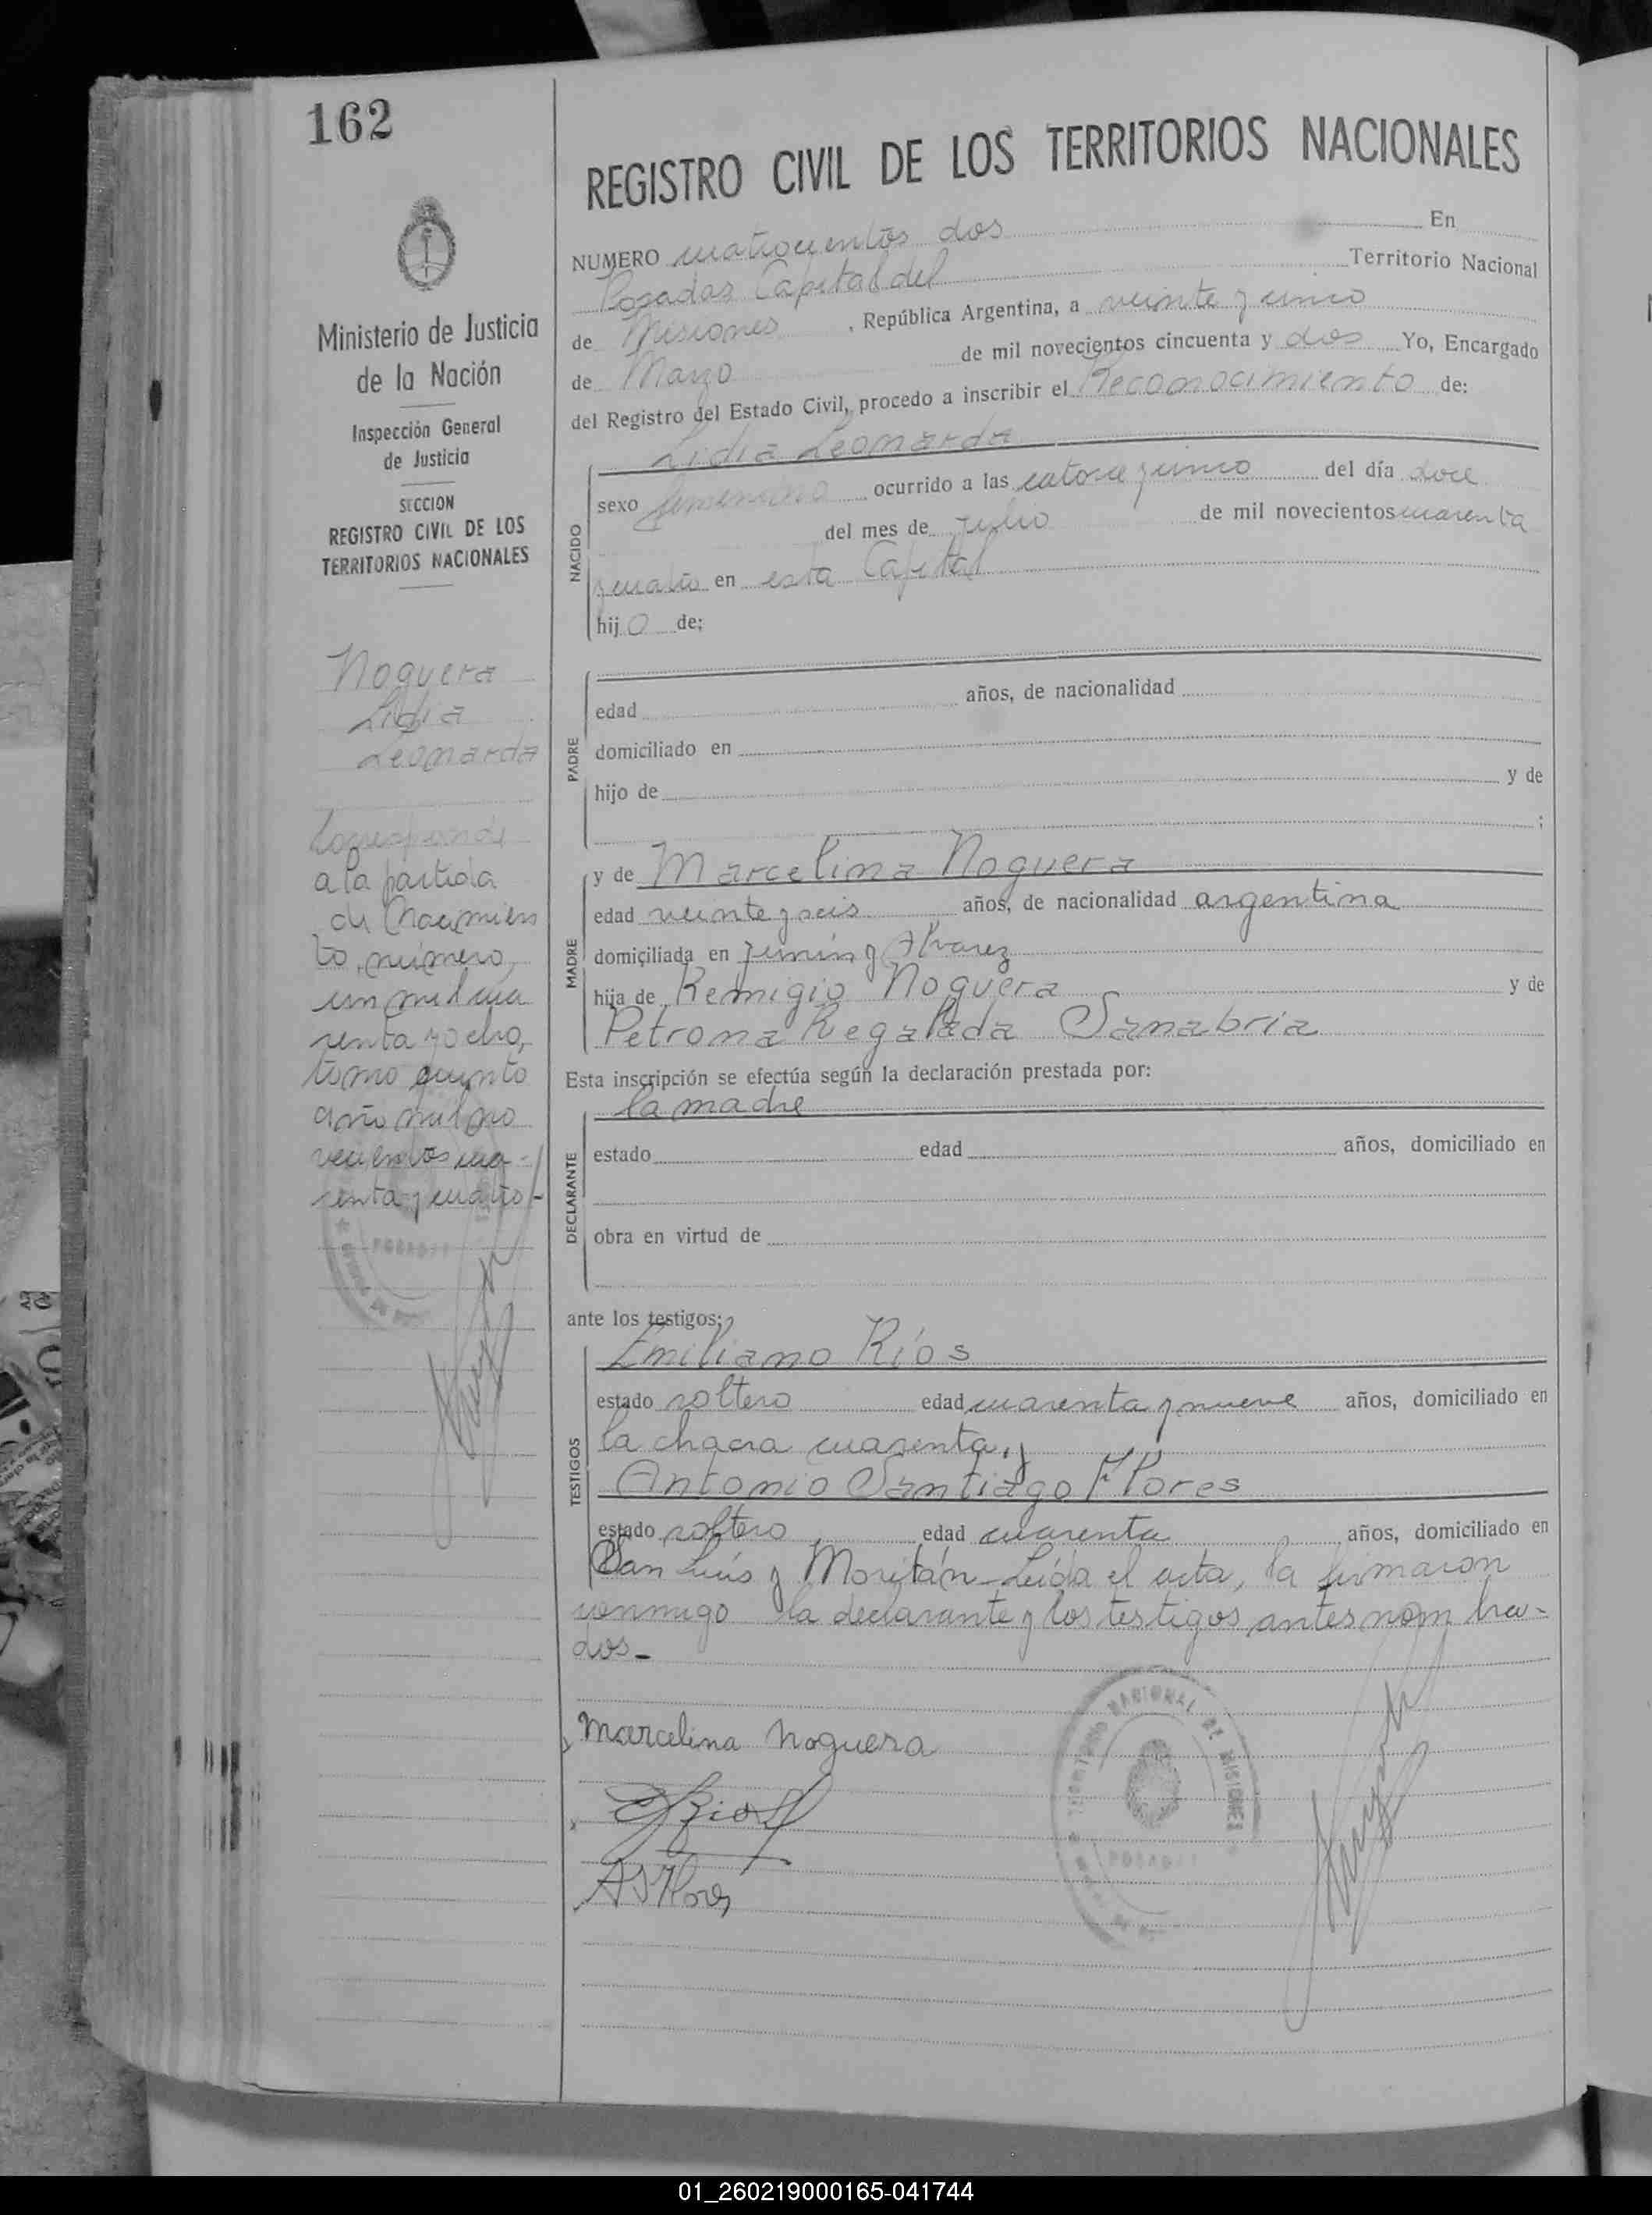 162
REGISTRO CIVIL DE LOS TERRITORIOS NACIONALES
Ministerio de Justicia
de la Nación
Inspección General
de Justicia
SECCION
REGISTRO CIVIL DE LOS
TERRITORIOS NACIONALES
Noguera
Lidia
Leonarda
Corresponde
a la partida
de Nacimien
to, número,
un mil cua
renta y ocho,
tomo quinto
año mil no
vecientos cua-
renta y cuatro-
NUMERO cuatrocientos dos En
Posadas Capital del Territorio Nacional
de Misiones, República Argentina, a veinte y cinco
de Marzo de mil novecientos cincuenta y dos Yo, Encargado
del Registro del Estado Civil, procedo a inscribir el Reconocimiento de:
Lidia Leonarda
NACIDO
sexo femenino ocurrido a las catorce y cinco del día doce
del mes de julio de mil novecientos cuarenta
y cuatro en esta Capital
hijo de:
PADRE
edad años, de nacionalidad
domiciliado en
hijo de y de
;
MADRE
y de Marcelina Noguera
edad veinte y seis años, de nacionalidad argentina
domiciliada en Junín y Alvarez
hija de Remigio Noguera y de
Petrona Regalada Sanabria
Esta inscripción se efectúa según la declaración prestada por:
DECLARANTE
la madre
estado edad años, domiciliado en
obra en virtud de
ante los testigos:
TESTIGOS
Emiliano Ríos
estado soltero edad cuarenta y nueve años, domiciliado en
la chacra cuarenta, y
Antonio Santiago Flores
estado soltero edad cuarenta años, domiciliado en
San Luís y Moritán-Leída el acta, la firmaron
conmigo la declarante y los testigos antes nombra-
dos.-
Marcelina Noguera
E Rios
A S Flores
TERRITORIO NACIONAL DE MISIONES
POSADAS
01_260219000165-041744